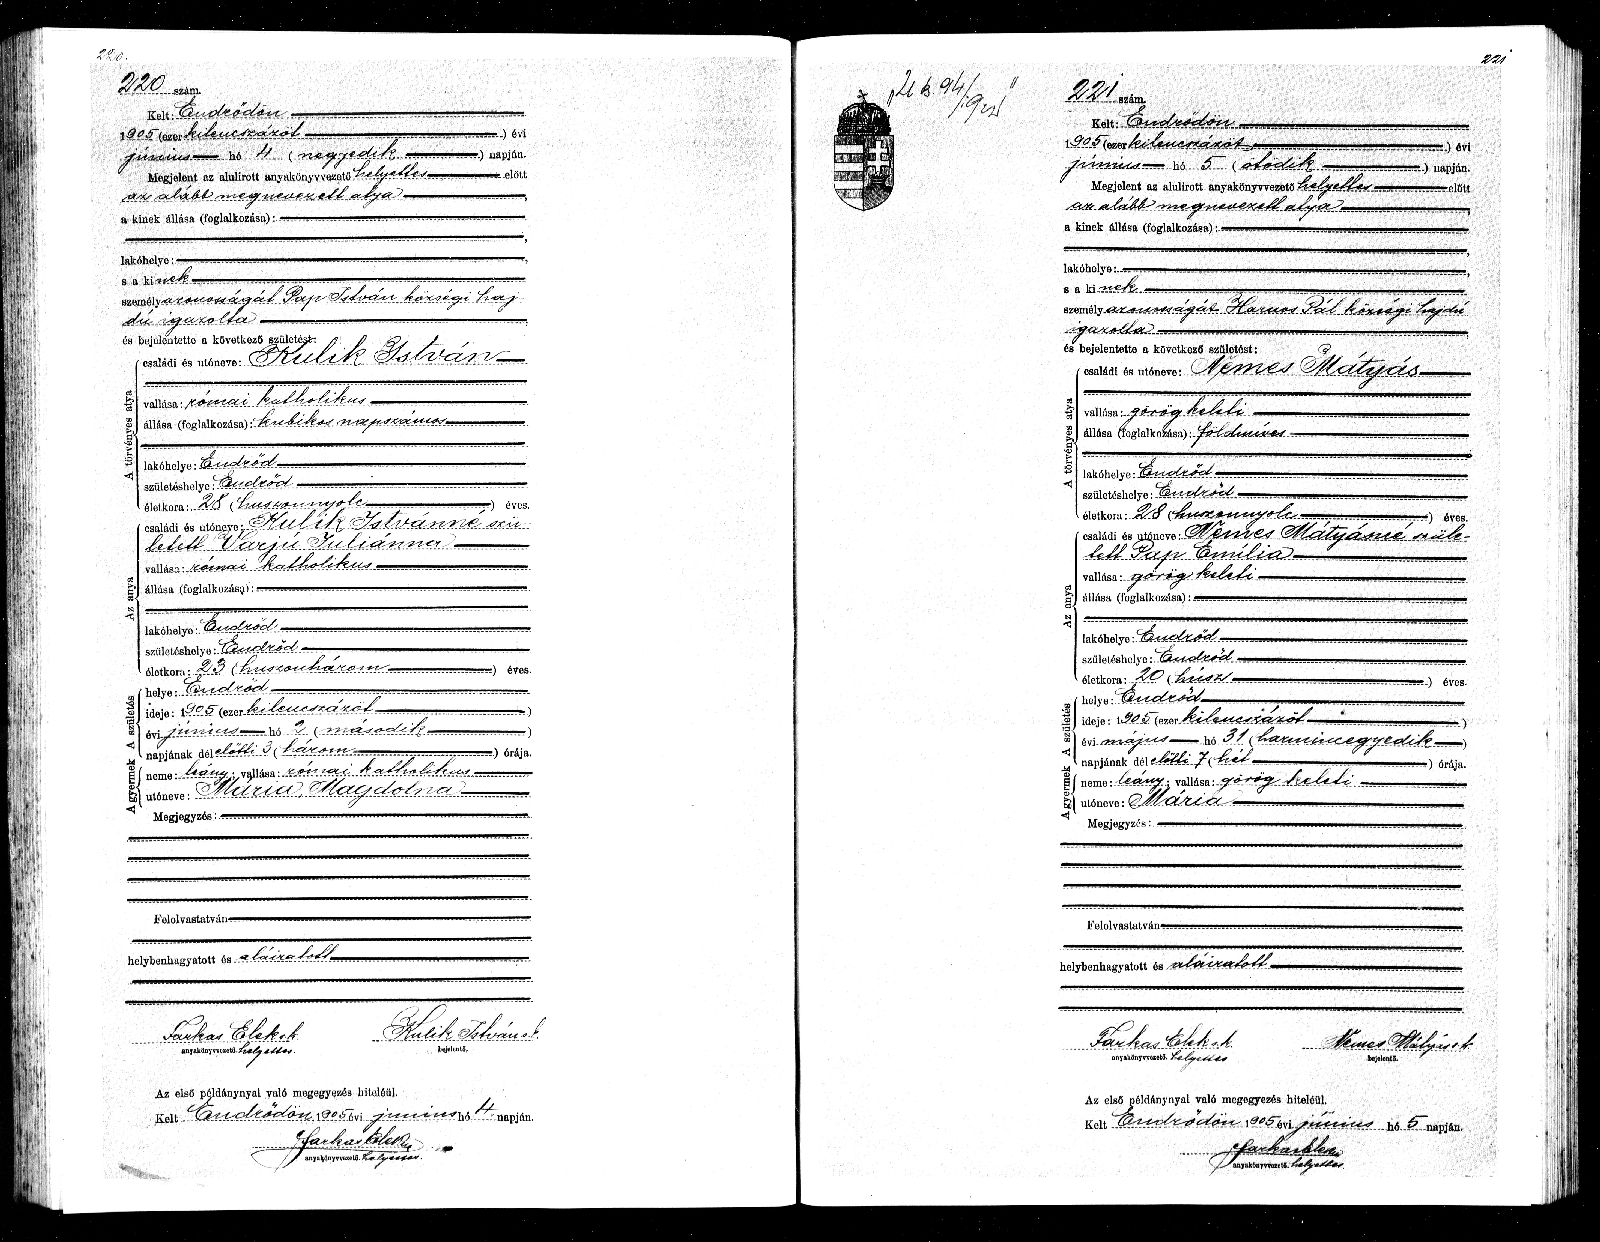 220.
220 szám.
Kelt: Endrődön
1905 (ezer kilencszázöt) évi
június hó 4 (negyedik) napján.
Megjelent az alulirott anyakönyvvezető helyettes előtt
az alább megnevezett atya,
a kinek állása (foglalkozása):
lakóhelye:
s a kinek
személyazonosságát Pap István községi haj
dú igazolta
és bejelentette a következő születést:
A törvényes atya
családi és utóneve: Kulik István
vallása: római katholikus
állása (foglalkozása): kubikos napszámos
lakóhelye: Endrőd
születéshelye: Endrőd
életkora: 28 (huszonnyolc) éves.
Az anya
családi és utóneve: Kulik Istvánné szü
letett Varjú Juliánna
vallása: római katholikus
állása (foglalkozása):
lakóhelye: Endrőd
születéshelye: Endrőd
életkora: 23 (huszonhárom) éves.
A születés
helye: Endrőd
ideje: 1905 (ezer kilencszázöt)
évi június hó 2 (második)
napjának dél előtti 3 (három) órája.
A gyermek
neme: leány; vallása: római katholikus
utóneve: Mária, Magdolna
Megjegyzés:
Felolvastatván
helybenhagyatott és aláiratott
Farkas Elek sk Kulik István s.k.
anyakönyvvezető helyettes bejelentő.
Az első példánynyal való megegyezés hiteléül.
Kelt Endrődön 1905 évi június hó 4 napján.
Farkas Elek
anyakönyvvezető helyettes.
221
221 szám.
Kelt: Endrődön
1905 (ezer kilencszázöt) évi
június hó 5 (ötödik) napján.
Megjelent az alulirott anyakönyvvezető helyettes előtt
az alább megnevezett atya,
a kinek állása (foglalkozása):
lakóhelye:
s a kinek
személyazonosságát Harnos Pál községi hajdú
igazolta
és bejelentette a következő születést:
A törvényes atya
családi és utóneve: Nemes Mátyás
vallása: görög keleti
állása (foglalkozása): földmíves
lakóhelye: Endrőd
születéshelye: Endrőd
életkora: 28 (huszonnyolc) éves.
Az anya
családi és utóneve: Nemes Mátyásné szüle-
tett Pap Emília
vallása: görög keleti
állása (foglalkozása):
lakóhelye: Endrőd
születéshelye: Endrőd
életkora: 20 (húsz) éves.
A születés
helye: Endrőd
ideje: 1905 (ezer kilencszázöt)
évi május hó 31 (harmincegyedik)
napjának dél előtti 7 (hét) órája.
A gyermek
neme: leány; vallása: görög keleti
utóneve: Mária
Megjegyzés:
Felolvastatván
helybenhagyatott és aláiratott
Farkas Elek sk Nemes Mátyás s.k.
anyakönyvvezető helyettes bejelentő.
Az első példánynyal való megegyezés hiteléül.
Kelt Endrődön 1905 évi június hó 5 napján.
Farkas Elek
anyakönyvvezető. helyettes.